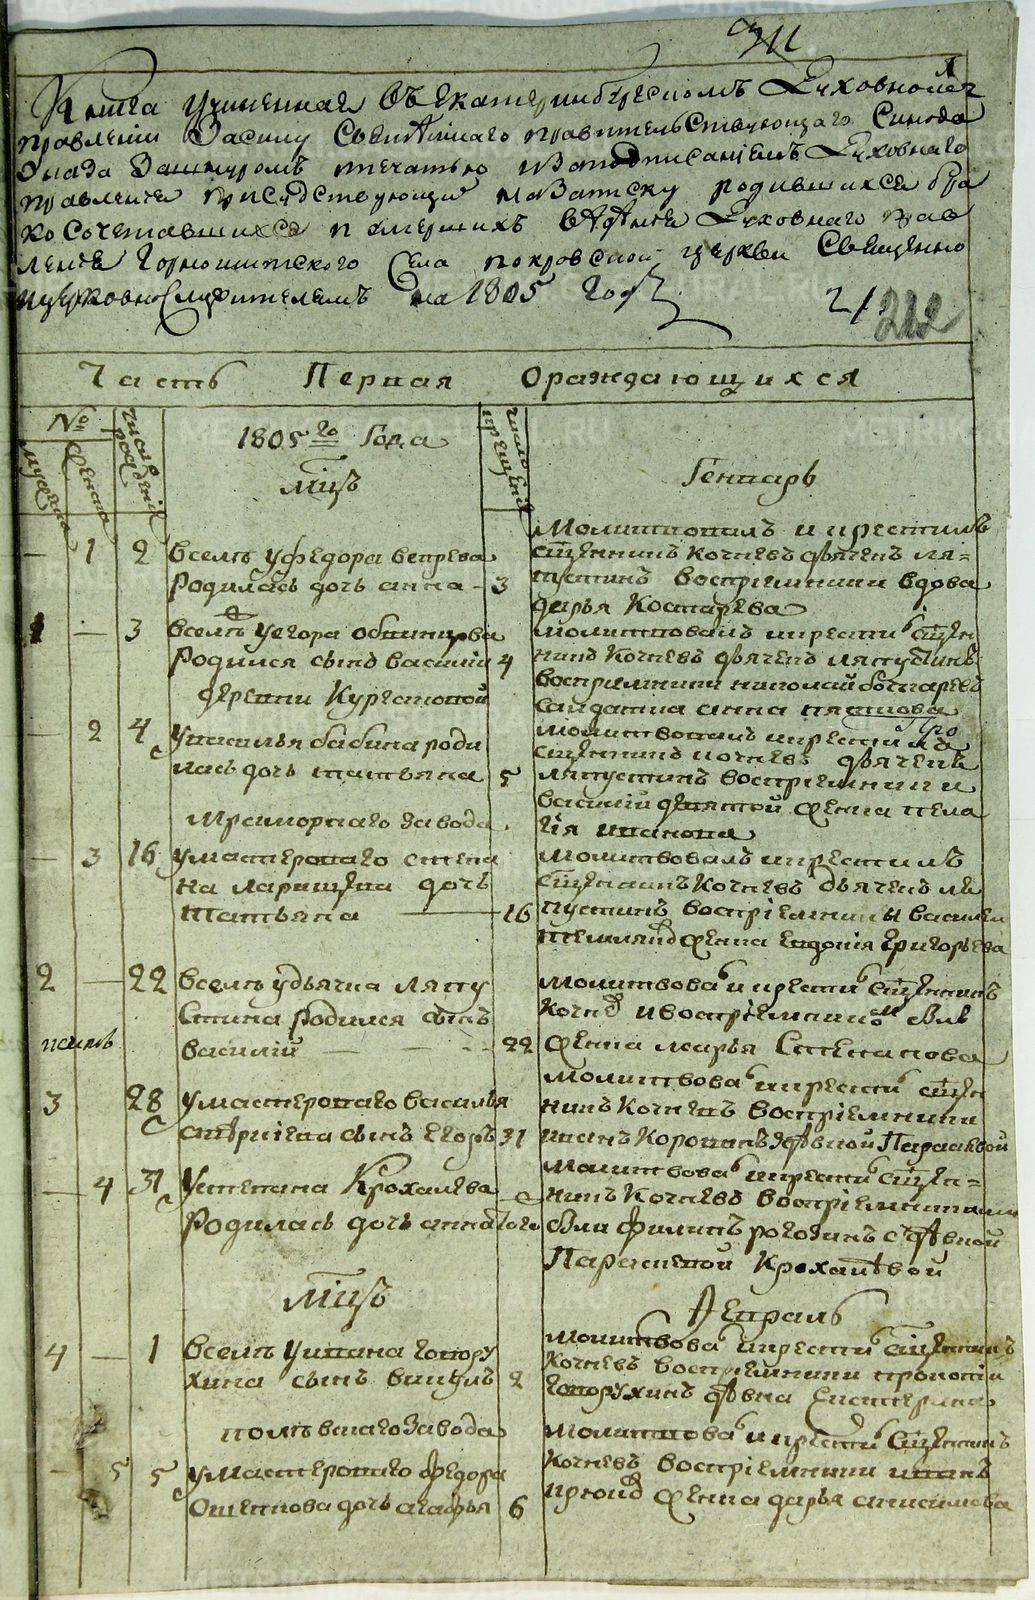 311
Книга учиненная въ екатеринбургскомъ Духовномъ
правленіи Засилу Святѣйшаго правительствующаго Синода
Указа Зашнуромъ печатью изаподписаніемъ Духовнаго
правленія присудствующихъ назаписку родившихся бра
косочетавшихся и умершихъ Духовнаго прав
ленія Горнощитского Села покровской церкви Священно
ицерковнослужителемъ на 1805 годъ
212
Часть Первая Ораждающихся
№ мужеска женска число рожденія 1805го Года мцъ число крещенія Генварь
1 2 Вселѣ уфедора ветрева
родилась дочь анна 3
Молитвовалъ и крестилъ
сщенникъ Кочневъ дьячекъ ля=
пустинъ воспріемники вдова
дарья Костарева
1 3 Вселѣ уегора
родился сынъ василій 4
молитвовалъ икрести сщен
никъ Кочневъ дьячекъ ляпустинъ
воспріемники николай
анна
деревни Кургановой
2 4 увасилья бабина роди
лась дочь татьяна 5
молитвовалъ икрестилъ
сщенникъ кочневъ дьячекъ
ляпустинъ воспріемники
василій девятой женка пела
гія иванова
Мраморнаго завода
3 16 умастероваго степа
на ларицева дочь
татьяна 16
молитвовалъ икрестилъ
сщенникъ Кочневъ дьячекъ ля
пустинъ воспріемники василей
женка евдокія григорьева
2 22 вселѣ удьячка ляпу
стина родился сынъ
василій 22
молитвова и крести сщенникъ
Кочне ивоспріемникомъ былъ
женка марья Степанова
3 28 умастероваго василья
сынъ егоръ 31
молитвова икрести сщен
никъ Кочневъ воспріемники
иванъ Коровинъ здѣвкой Параскевой
4 31 устепана Крохалева
родилась дочь анна того
молитвова икрести сщен=
никъ Кочневъ воспріемниками
были филипъ рогозинъ с дѣвкой
Параскевой Крохалѣвой
Мцъ Февраль
4 1 вселѣ уивана говору
хина сынъ викулъ 2
молитвова икрести сщенникъ
кочневъ воспріемники прокопій
говорухинъ дѣвка екатерина
полѣвскаго завода
5 5 умастероваго федора
дочь агафья 6
молитвова икрести сщенникъ
Кочневъ воспріемники иванъ
женка дарья анисимова